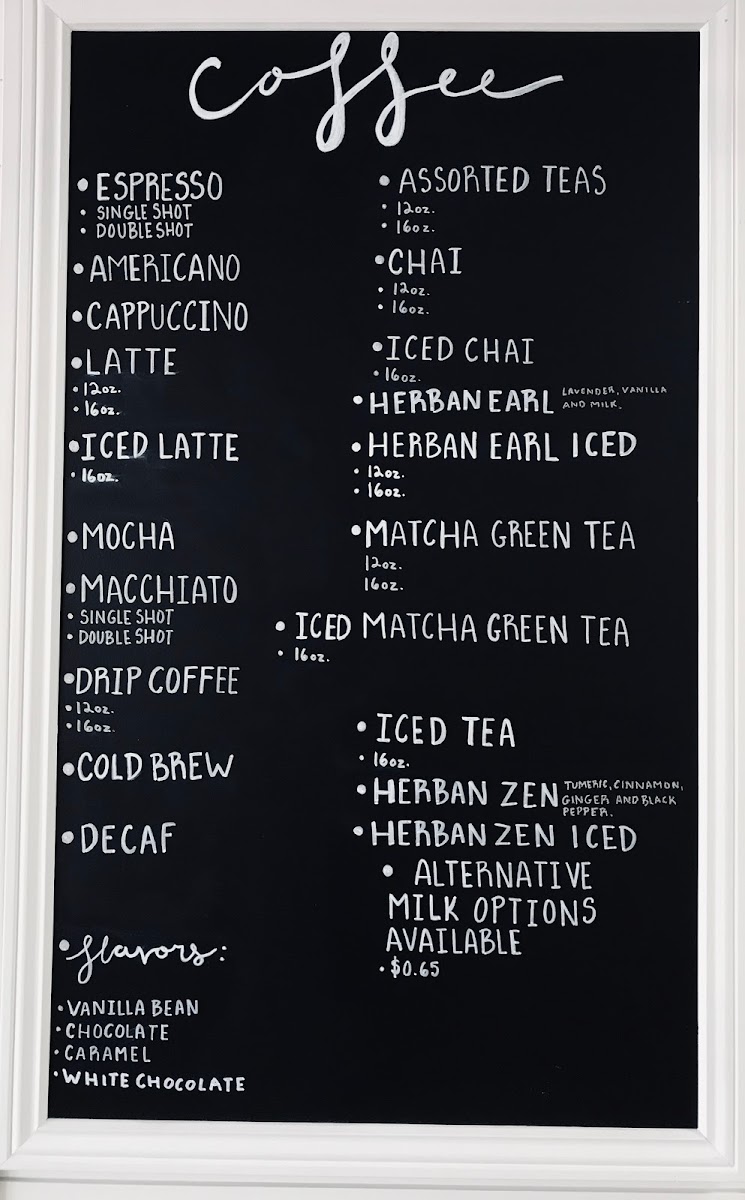 Coffee
• ESPRESSO
• SINGLE SHOT
• DOUBLE SHOT
• AMERICANO
• CAPPUCCINO
• LATTE
• 12oz.
• 16oz.
• ICED LATTE
• 16oz.
• MOCHA
• MACCHIATO
• SINGLE SHOT
• DOUBLE SHOT
• DRIP COFFEE
• 12oz.
• 16oz.
• COLD BREW
• DECAF
• flavors:
• VANILLA BEAN
• CHOCOLATE
• CARAMEL
• WHITE CHOCOLATE
• ASSORTED TEAS
• 12oz.
• 16oz.
• CHAI
• 12oz.
• 16oz.
• ICED CHAI
• 16oz.
• HERBAN EARL LAVENDER, VANILLA
AND MILK.
• HERBAN EARL ICED
• 12oz.
• 16oz.
• MATCHA GREEN TEA
12oz.
16oz.
• ICED MATCHA GREEN TEA
• 16oz.
• ICED TEA
• 16oz.
• HERBAN ZEN TUMERIC, CINNAMON,
GINGER AND BLACK
PEPPER.
• HERBAN ZEN ICED
• ALTERNATIVE
MILK OPTIONS
AVAILABLE
• $0.65